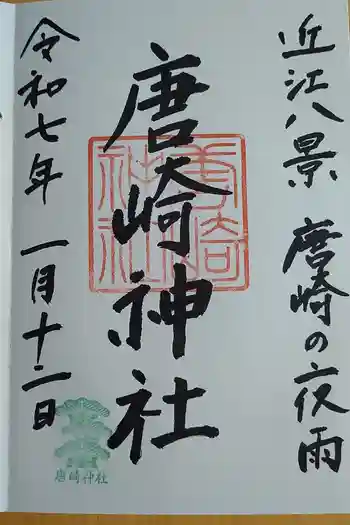 近江八景 唐崎の夜雨
唐崎神社
令和七年 一月十二日
唐崎神社
唐崎神社